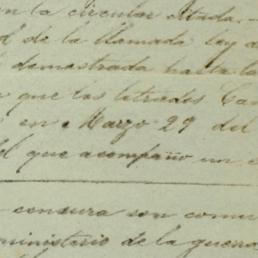 en la circular citada.-
de la llamada Ley de
demostrada hasta la
que los letrados
en Marzo 29 del
que acompaño un
censura son comu
ministerio de la guerra